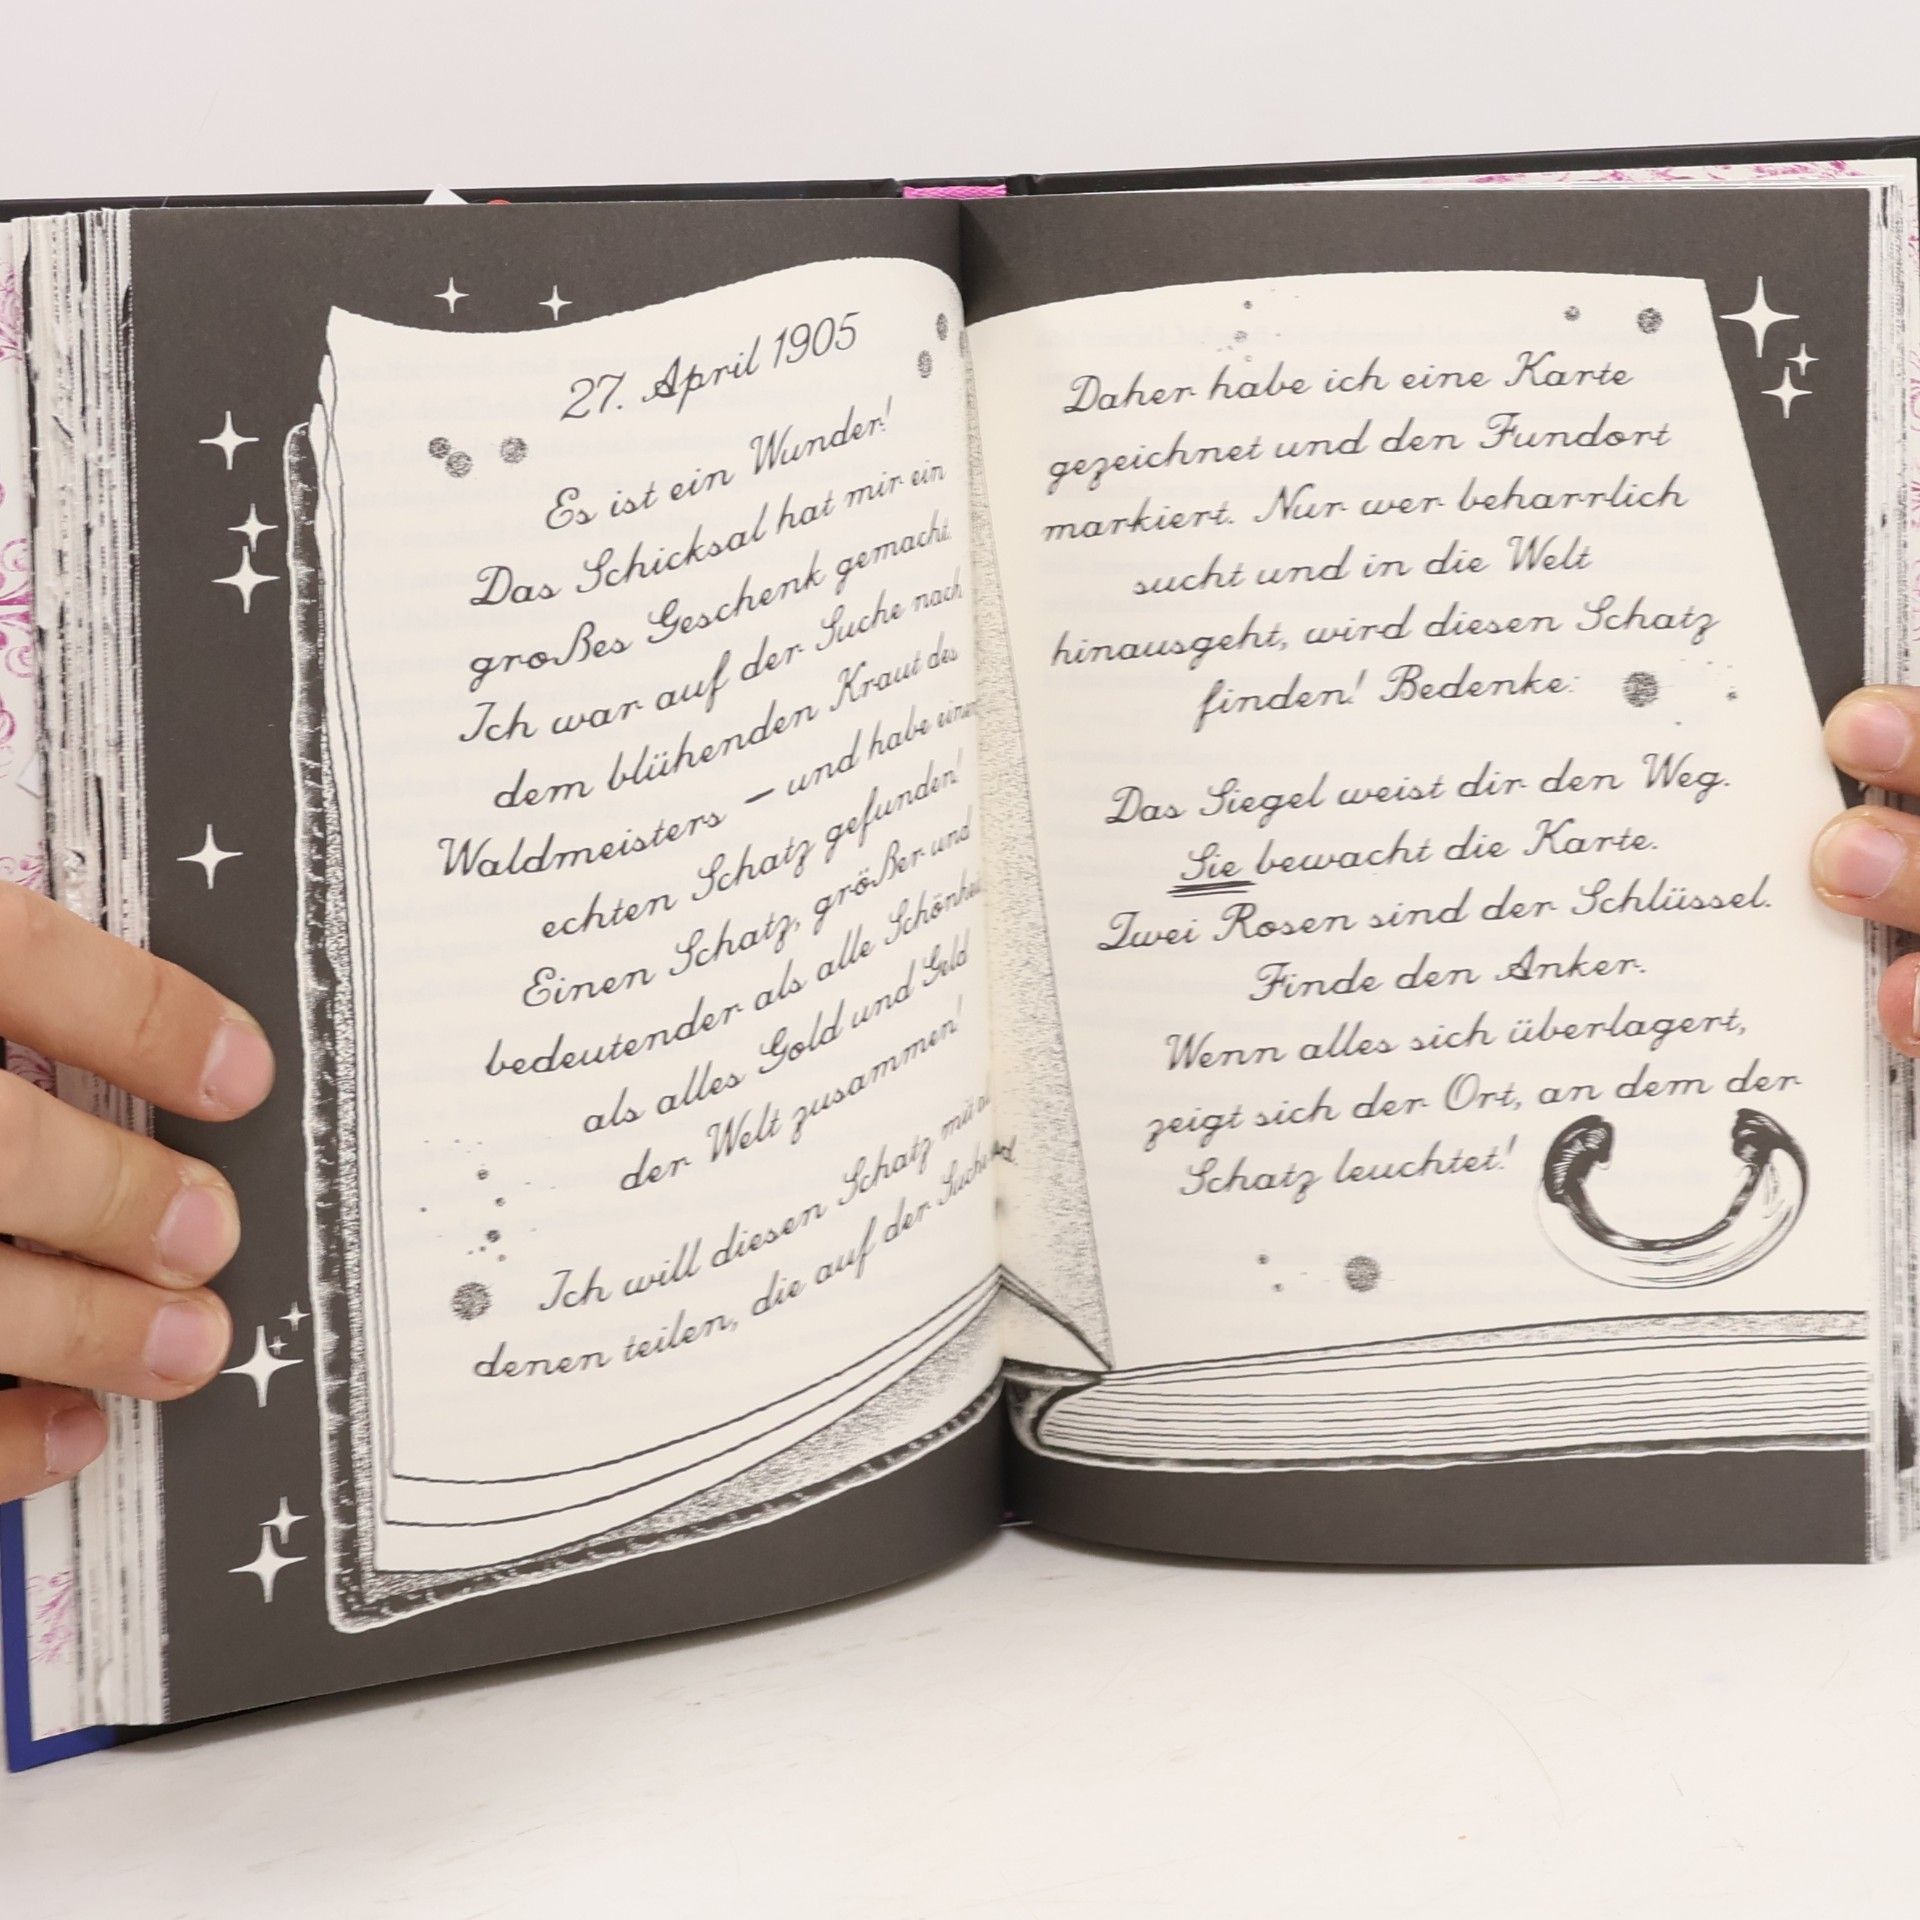 27. April 1905
Es ist ein Wunder!
Das Schicksal hat mir ein
großes Geschenk gemacht.
Ich war auf der Suche nach
dem blühenden Kraut des
Waldmeisters – und habe einen
echten Schatz gefunden!
Einen Schatz, größer und
bedeutender als alle Schönheit,
als alles Gold und Geld
der Welt zusammen!
Ich will diesen Schatz mit
denen teilen, die auf der Suche
Daher habe ich eine Karte
gezeichnet und den Fundort
markiert. Nur wer beharrlich
sucht und in die Welt
hinausgeht, wird diesen Schatz
finden! Bedenke:
Das Siegel weist dir den Weg.
Sie bewacht die Karte.
Zwei Rosen sind der Schlüssel.
Finde den Anker.
Wenn alles sich überlagert,
zeigt sich der Ort, an dem der
Schatz leuchtet!